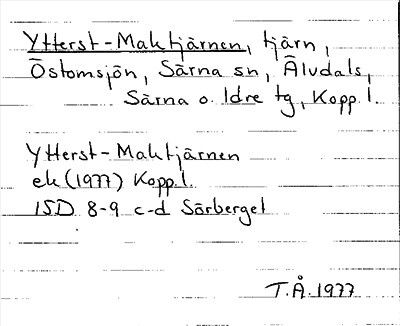 Ytterst-Maktjärnen, tjärn,
Östomsjön, Särna sn, Älvdals,
Särna o. Idre tg, Kopp.l.
Ytterst-Maktjärnen
ek (1977) Kopp.l.
15D 8-9 c-d Sörberget
T.Å. 1977